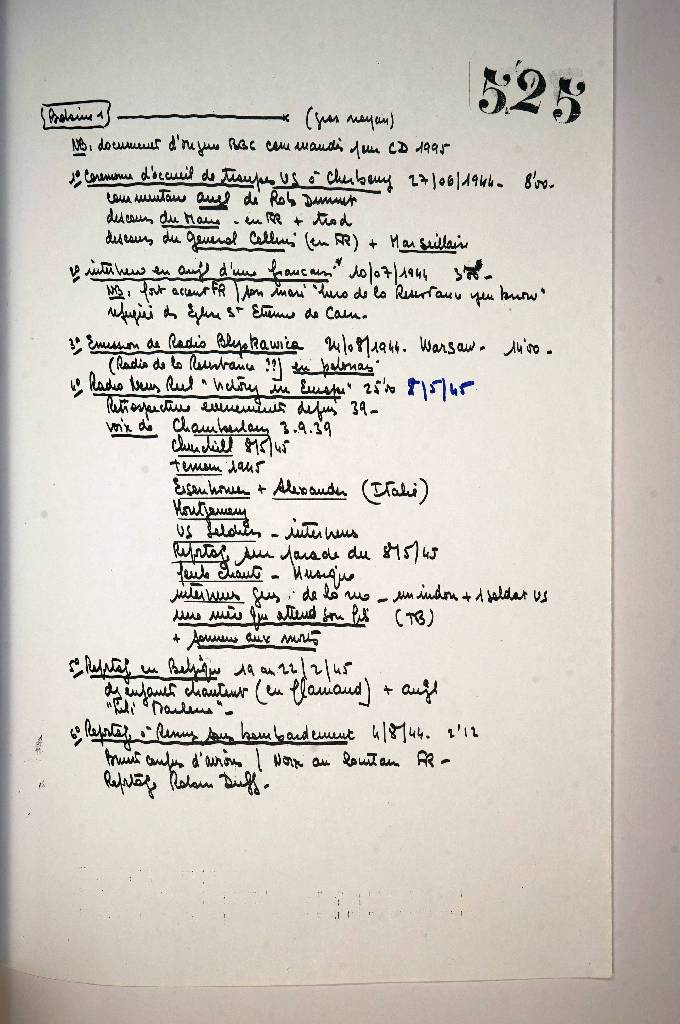 525
Bobine 1 (gros noyau)
NB: document d'origine BBC commandés pour CD 1995
1° Ceremonie d'accueil de troupes US à Cherbourg 27/06/1944 - 8'00 -
commentaire angl de Rob
discours du Maire - en FR + trad
discours du General Collins (en FR) + Marseillaise
2° interview en angl d'une francaise 10/07/1944 3' -
NB: fort accent FR / son mari "hero de la Resistance you know"
refugiée ds Eglise St Etienne de Caen -
3° Emission de Radio 24/08/1944 - Warsaw - 14'00 -
(Radio de la Resistance ??) en polonais
4° Radio News Reel "Victory in Europe" 25'00 8/5/45
Retrospective evenements depuis 39 -
voix de Chamberlain 3.9.39
Churchill 8/5/45
1945
Eisenhower + Alexander (Italie)
Montgomery
US Soldiers - interviews
Reportage sur parade du 8/5/45
foule chante - Musique
interviews gens de la rue - + 1 soldat US
une mère qui attend son fils (TB)
+ sonnerie aux morts
5° Reptage en Belgique 19 au 22/2/45
ds enfants chantent (en flamand) + angl
"Lili Marlene" -
6° Reportage à Rennes sous bombardement 4/8/44 - 2'12
Bruit coups d'avions / Voix au lointain FR -
Reptage Robin Duff -